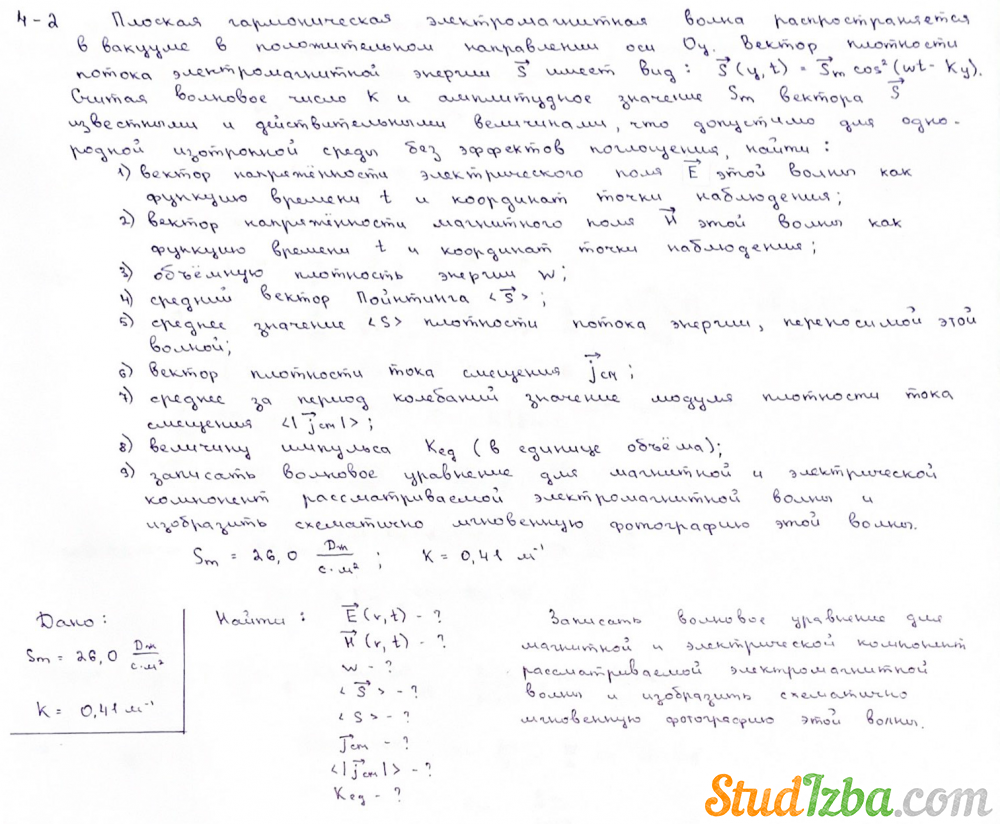 4-2 Плоская гармоническая электромагнитная волна распространяется
в вакууме в положительном направлении оси Oy. Вектор плотности
потока электромагнитной энергии S⃗ имеет вид: S⃗(y,t) = S⃗m cos²(wt - Ky).
Считая волновое число K и амплитудное значение Sm вектора S⃗
известными и действительными величинами, что допустимо для одно-
родной изотропной среды без эффектов поглощения, найти:
1) вектор напряжённости электрического поля E⃗ этой волны как
функцию времени t и координат точки наблюдения;
2) вектор напряжённости магнитного поля H⃗ этой волны как
функцию времени t и координат точки наблюдения;
3) объёмную плотность энергии w;
4) средний вектор Пойнтинга <S⃗>;
5) среднее значение <S> плотности потока энергии, переносимой этой
волной;
6) вектор плотности тока смещения j⃗см;
7) среднее за период колебаний значение модуля плотности тока
смещения <|j⃗см|>;
8) величину импульса Kед (в единице объёма);
9) записать волновое уравнение для магнитной и электрической
компонент рассматриваемой электромагнитной волны и
изобразить схематично мгновенную фотографию этой волны.
Sm = 26,0 Дж/с·м²; K = 0,41 м⁻¹
Дано:
Sm = 26,0 Дж/с·м²
K = 0,41 м⁻¹
Найти:
E⃗(r,t) - ?
H⃗(r,t) - ?
w - ?
<S⃗> - ?
<S> - ?
j⃗см - ?
<|j⃗см|> - ?
Kед - ?
Записать волновое уравнение для
магнитной и электрической компонент
рассматриваемой электромагнитной
волны и изобразить схематично
мгновенную фотографию этой волны.
StudIzba.com